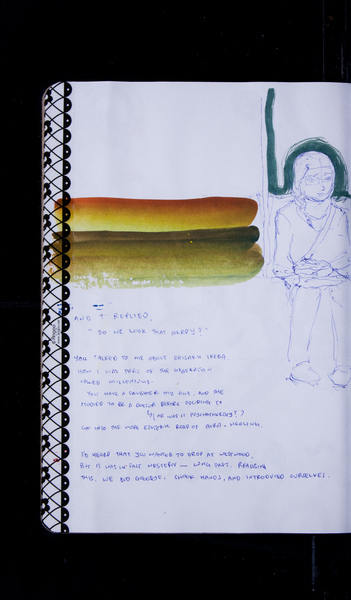 AND I REPLIED,
"DO WE LOOK THAT NERDY?"
YOU TALKED TO ME ABOUT DAISAKU IKEDA.
HOW I WAS PART OF THE GENERATION
CALLED MILLENNIUMS.
YOU HAVE A DAUGHTER MY AGE, AND ARE
TO BE A DOCTOR BEFORE DECIDING TO
(OR WAS IT PSYCHOTHERAPY?)
GO INTO THE MORE ESOTERIC ROAD OF AURA-HEALING.
I'D HEARD THAT YOU WANTED TO DROP AT WESTWOOD,
BUT IT WAS IN FACT WESTERN — LONG PAST. REALISING
THIS, WE DID GOODBYE, SHOOK HANDS, AND INTRODUCED OURSELVES.